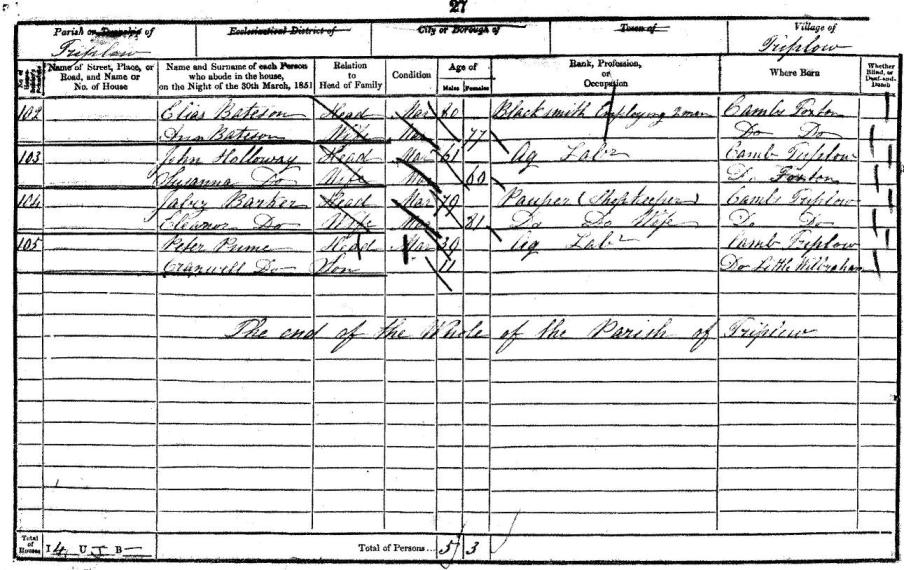 27
Parish or Township of
Ecclesiastical District of
City or Borough of
Town of
Village of
Triplow
Triplow
Name of Street, Place, or Road, and Name or No. of House
Name and Surname of each Person who abode in the house, on the Night of the 30th March, 1851
Relation to Head of Family
Condition
Age of
Males
Females
Rank, Profession, or Occupation
Where Born
Whether Blind, or Deaf-and-Dumb
102 Elias Bateson Head Mar 80 Blacksmith Employing 2 men Cambs Foxton
Ann Bateson Wife Mar 77 Do Do
103 John Holloway Head Mar 61 Ag Labr Camb Triplow
Susanna Do Wife Mar 60 Do Foxton
104 Jabez Barker Head Mar 79 Pauper (Shopkeeper) Cambs Triplow
Eleanor Do Wife Mar 81 Do Do Wife Do Do
105 Peter Head Mar Ag Labr Camb Triplow
Do Son 11 Do Little Wilbraham
The end of the Whole of the Parish of Triplow
Total of Houses I 4 U I B —
Total of Persons... 5 3